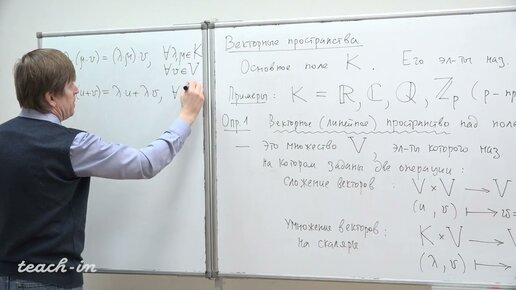 (μ·v) = (λ·μ)·v, ∀λ,μ∈K
∀v∈V
u+v) = λ·u+λv, ∀
Векторные пространства
Основное поле K. Его эл-ты наз.
Примеры: K = ℝ, ℂ, ℚ, ℤp (p - пр
Опр.1 Векторное (линейное) пространство над поле
— Это множество V эл-ты которого наз
на котором заданы две операции:
Сложение векторов: V × V → V
(u, v) ↦ w=
Умножение векторов: K × V →
на скаляры (λ, v) ↦
teach-in